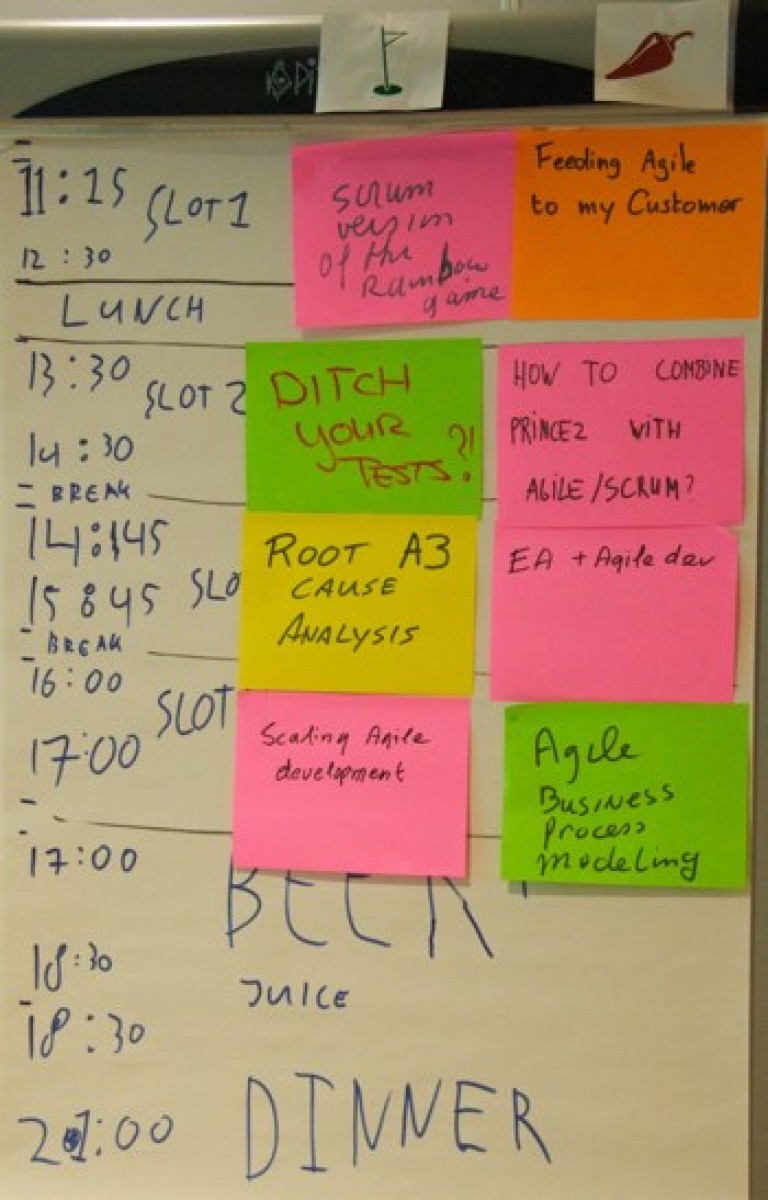 11:15 SLOT 1
12:30
Scrum
version
of the
Rainbow
game
Feeding Agile
to my Customer
LUNCH
13:30 SLOT 2
14:30
DITCH
YOUR
TESTS?!
HOW TO COMBINE
PRINCE2 WITH
AGILE/SCRUM?
BREAK
14:45
15:45 SLO
ROOT A3
CAUSE
ANALYSIS
EA + Agile dev
BREAK
16:00
SLOT
17:00
Scaling Agile
development
Agile
Business
Process
Modeling
17:00
BEER
18:30
JUICE
18:30
21:00 DINNER